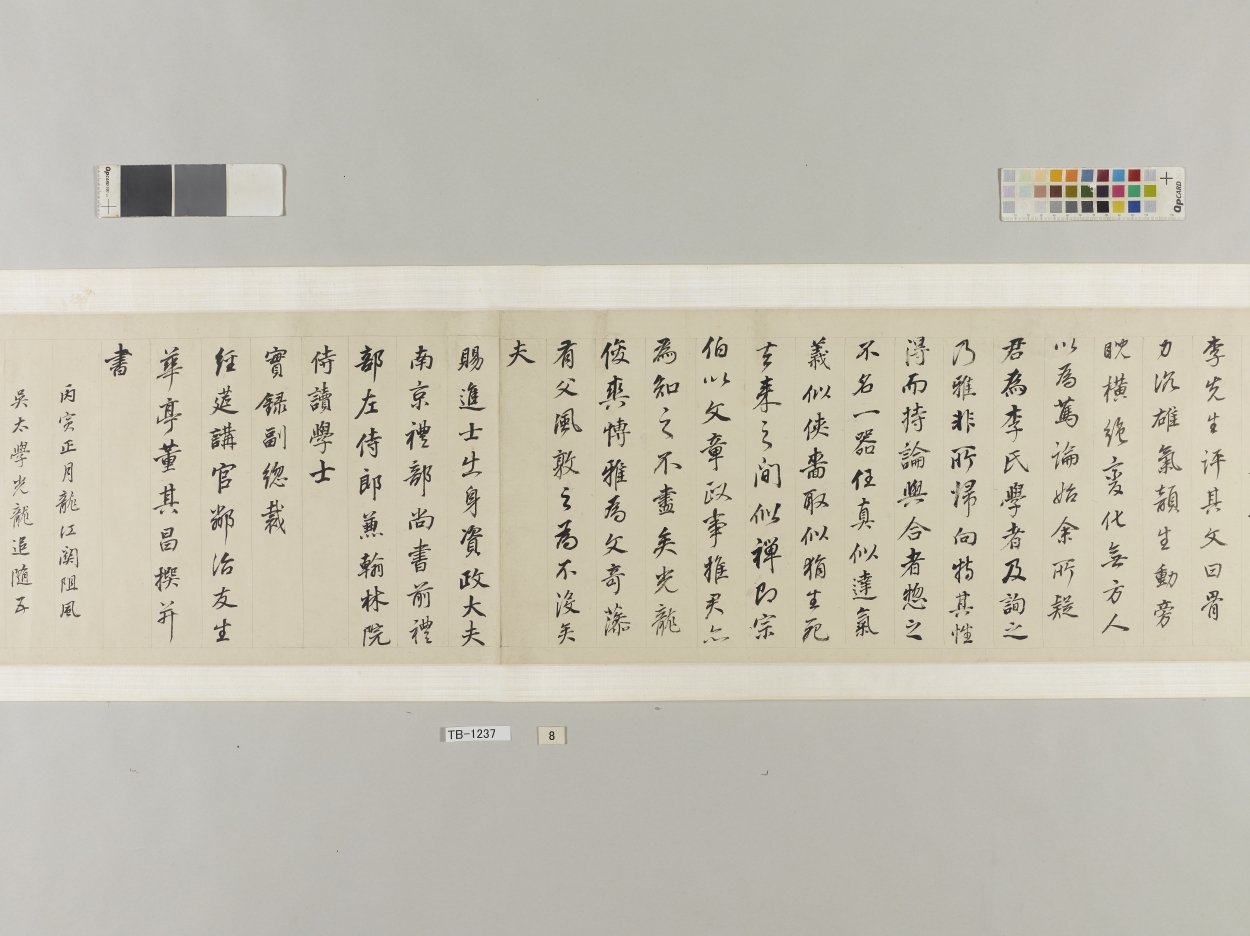 李先生評其文曰骨
力沉雄氣韻生動旁
睨橫絕變化無方人
以為篤論始余所疑
君為李氏學者及詢之
乃雅非所歸向特其性
得而持論與合者惣之
不名一器任真似達氣
義似俠嗇取似狷生死
去来之間似禅即宗
伯以文章政事推君亦
為知之不盡矣光龍
俊爽博雅為文奇藻
有父風敦之為不沒矣
夫
賜進士出身資政大夫
南京禮部尚書前禮
部左侍郎兼翰林院
侍讀學士
實録副總裁
經莚講官鄰治友生
華亭董其昌撰并
書
丙寅正月龍江関阻風
吳太學光龍追隨五
TB-1237
8
QPCARD
QPCARD